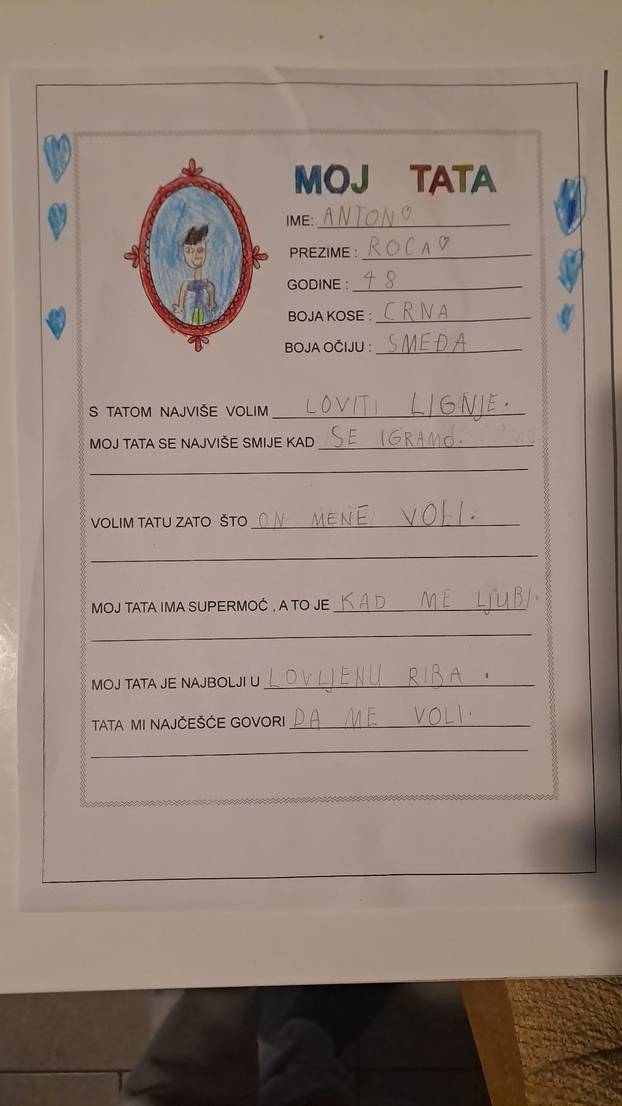 MOJ TATA
IME: ANTON
PREZIME : ROCA
GODINE : 48
BOJA KOSE : CRNA
BOJA OČIJU : SMEĐA
S TATOM NAJVIŠE VOLIM LOVITI LIGNJE.
MOJ TATA SE NAJVIŠE SMIJE KAD SE IGRAMO.
VOLIM TATU ZATO ŠTO ON MENE VOLI.
MOJ TATA IMA SUPERMOĆ , A TO JE KAD ME LJUBI.
MOJ TATA JE NAJBOLJI U LOVLJENU RIBA .
TATA MI NAJČEŠĆE GOVORI DA ME VOLI.